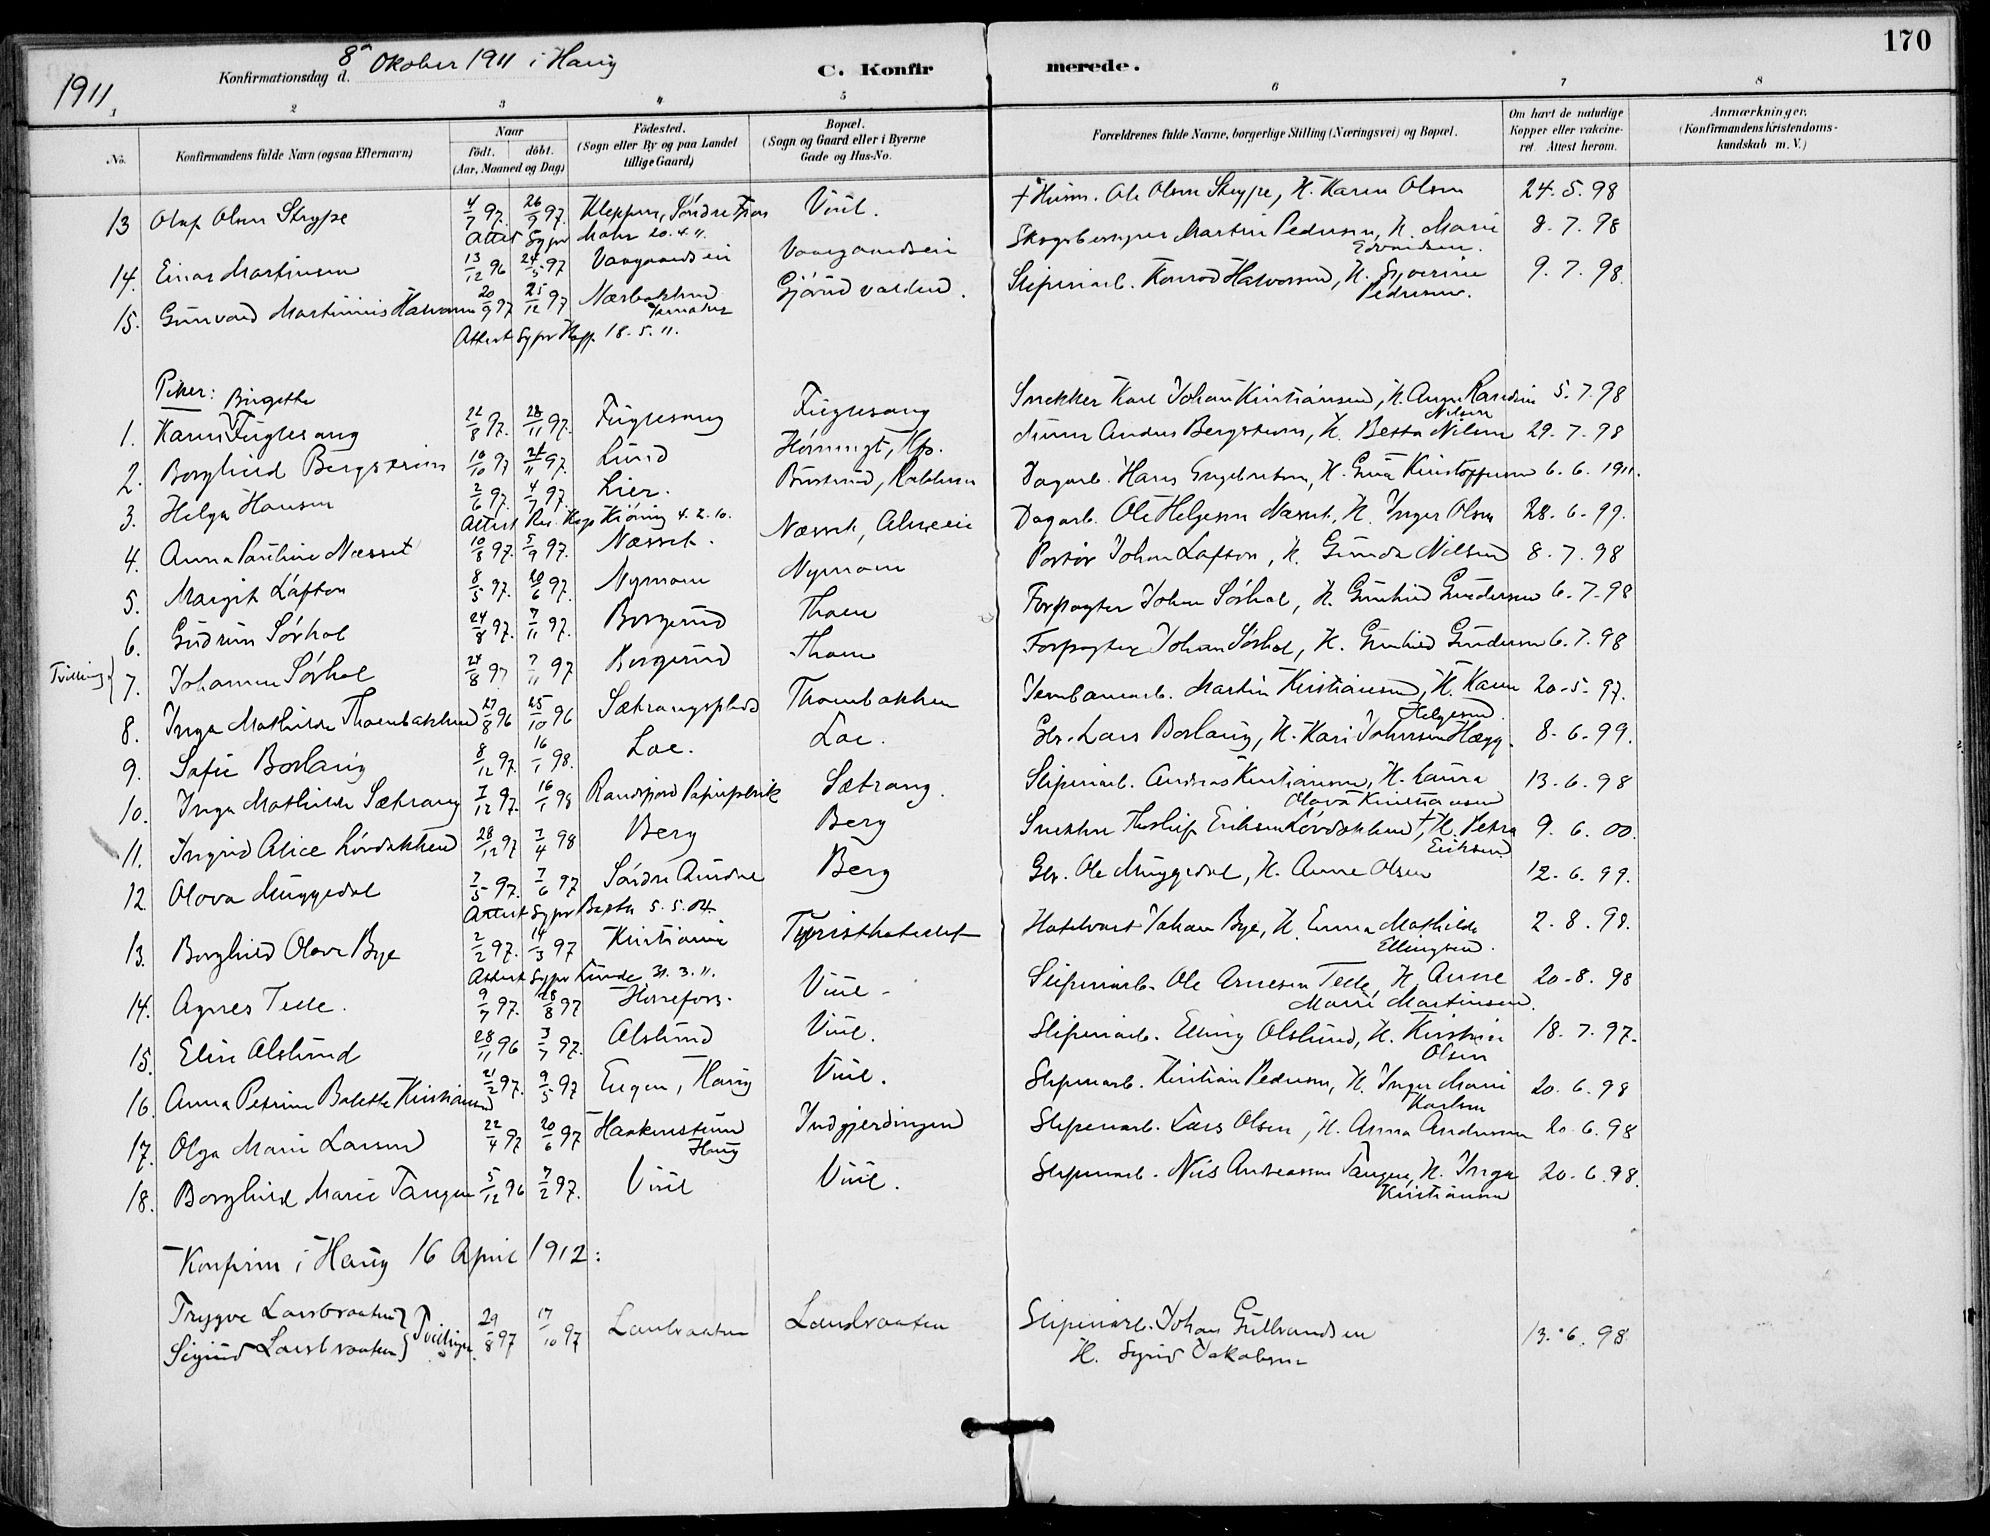 170
1911
Konfirmationsdag d. 8de Oktober 1911 i Haug
C. Konfirmerede.
1 2 3 4 5 6 7 8
No.
Konfirmandens fulde Navn (ogsaa Efternavn)
Naar
født. døbt.
(Aar, Maaned og Dag)
Fødested.
(Sogn eller By og paa Landet
tillige Gaard)
Bopæl.
(Sogn og Gaard eller i Byerne
Gade og Hus-No.
Forældrenes fulde Navne, borgerlige Stilling (Næringsvei) og Bopæl.
Om havt de naturlige
Kopper eller vakcine-
ret. Attest herom.
Anmærkninger.
(Konfirmandens Kristendoms-
kundskab m. V.)
13 Olaf Olsen Strype 4/7 97. 26/9 97. Kleppen, Søndre Viul. † Husm. Ole Olsen Strype, H. Karen Olsen 24.5.98
Attest Sgpr Mohr 20.4.11.
14. Einar Martinsen 13/12 96 24/5 97 Vaagaardseie Vaagaardseie Martin Pedersen, H. Marie 8.7.98
15. Gunvald Martinius Halvorsen 20/9 97 25/12 97 Næsbakken Gjørudvalden. Sliperiarb. Konrad Halvorsen, H. Syverine Pedersen. 9.7.98.
Attest Sgpr Hopp 18.5.11.
Piker:
1. Karen Birgitte Fuglesang 22/8 97. 28/11 97. Fuglesang Fuglesang Snekker Karl Johan Kristiansen, H. Anne Randine Nilsen 5.7.98
2. Borghild Bergstrøm 10/10 97 21/11 97. Lund Anders Bergstrøm, H. Berta Nilsen 29.7.98
3. Helga Hansen 2/6 97. 4/7 97. Lier. Dagarb. Hans Engebretsen, H. Kristoffersen 6.6.1911.
Attest Res. Kap Kiøning 4.2.10.
4. Anna Pauline Næsset 10/8 97. 5/9 97. Næsset. Næsset, Dagarb. Ole Helgesen Næsset, H. Inger Olsen 28.6.99.
5. Margit Løften 8/5 97. 20/6 97. Nymoen Nymoen Portør Johan Løften, H. Gunda Nilsen 8.7.98
6. Gudrun Sørhol 24/8 97. 7/11 97. Borgerud Thoen Forpagter Johan Sørhol, H. Gunhild Gundersen 6.7.98
Tvilling
7. Johanne Sørhol 24/8 97 7/11 97 Borgerud Thoen Forpagter Johan Sørhol, H. Gunhild Gundersen 6.7.98
8. Inga Mathilde Thoenbakken 27/8 96 25/10 96 Sætrangsplads Thoenbakken Jernbanearb. Martin Kristiansen, H. Karen Helgesen. 20.5.97.
9. Sofie Borlaug 8/12 97. 16/1 98. Loe. Loe. Gbr. Lars Borlaug, H. Kari Johnsen Hægg. 8.6.99.
10. Inga Mathilde Sætrang 7/12 97. 16/1 98 Randsfjord Papirfabrik Sætrang. Sliperiarb. Andreas Kristiansen, H. Laura Olava Kristiansen 13.6.98
11. Ingrid Alice Løvdokken 28/12 97 7/4 98 Berg Berg Snekker Thorleif Eriksen Løvdokken †, H. Petra Eriksen 9.6.00.
12 Olava Muggedal 7/5 97. 7/6 97 Søndre Aurdal Berg Gbr. Ole Muggedal, H. Anne Olsen 12.6.99.
Attest Sgpr 5.5.04.
13. Borghild Olava Bye 2/2 97. 14/3 97 Kristiania Turisthotellet Hotelvert Johan Bye, H. Emma Mathilde Ellingsen. 2.8.98.
Attest Sgpr Lunde 31.3.11.
14. Agnes Teele. 9/7 97. 28/8 97 Hønefoss. Viul. Sliperiarb. Ole Arnesen Teele, H. Anne Marie Martinsen. 20.8.98
15. Elise Alslund 28/11 96 3/7 97. Alslund Viul. Sliperiarb. Elling Olslund, H. Kirstine Olsen 18.7.97.
16. Anna Petrine Bolette Kristiansen 21/2 97. 9/5 97 Engen, Haug Viul. Sliperiarb. Kristian Pedersen, H. Inger Marie Karlsen 20.6.98
17. Olga Marie Larsen 22/4 97 20/6 97 Haakenstuen Haug Indgjerdingen Sliperiarb. Lars Olsen, H. Anna Andersen 20.6.98
18. Borghild Marie Tangen 5/12 96 7/2 97. Viul Viul. Sliperiarb. Nils Andreassen Tangen, H. Inga Kristiansen 20.6.98.
Konfirm i Haug 16 April 1912:
Trygve Larsbraaten } Tvillinger 29/8 97 17/10 97 Sliperiarb. Johan Gulbrandsen 13.6.98.
Sigurd Larsbraaten } H. Sigrid Jakobsen